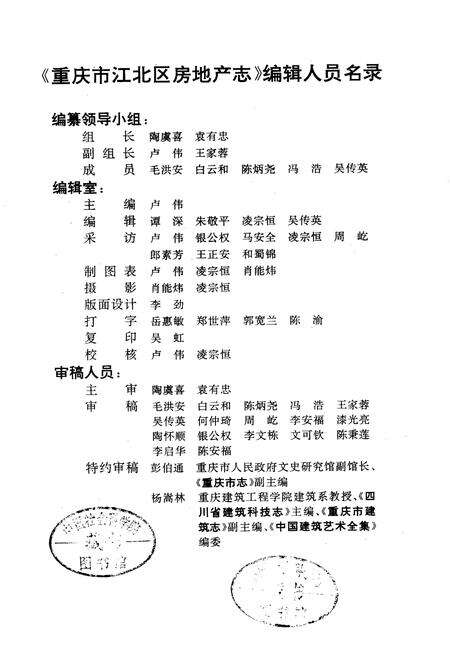 《重庆市江北区房地产志》编辑人员名录
编纂领导小组：
组 长 陶虞喜 袁有忠
副组长 卢 伟 王家蓉
成 员 毛洪安 白云和 陈炳尧 冯 浩 吴传英
编辑室：
主 编 卢 伟
编 辑 谭 深 朱敬平 凌宗恒 吴传英
采 访 卢 伟 银公权 马安全 凌宗恒 周 屹
郎素芳 王正安 和蜀锦
制图表 卢 伟 凌宗恒 肖能炜
摄 影 肖能炜 凌宗恒
版面设计 李 劲
打 字 岳惠敏 郑世萍 郭宽兰 陈 渝
复 印 吴 虹
校 核 卢 伟 凌宗恒
审稿人员：
主 审 陶虞喜 袁有忠
审 稿 毛洪安 白云和 陈炳尧 冯 浩 王家蓉
吴传英 何仲琦 周 屹 李安福 漆光亮
陶怀顺 银公权 李文栋 文可钦 陈秉莲
李启华 陈安福
特约审稿 彭伯通 重庆市人民政府文史研究馆副馆长、
《重庆市志》副主编
杨嵩林 重庆建筑工程学院建筑系教授、《四
川省建筑科技志》主编、《重庆市建
筑志》副主编、《中国建筑艺术全集》
编委
图书馆